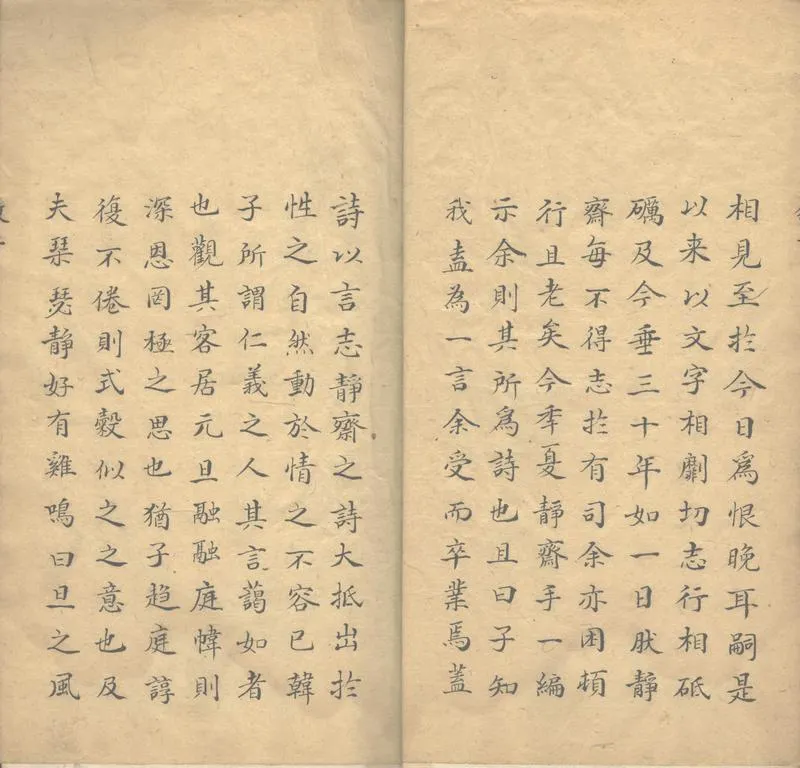 相見至於今日爲恨晚耳嗣是
以来以文字相劘切志行相砥
礪及今垂三十年如一日肰靜
齋每不得志於有司余亦困頓
行且老矣今季夏靜齋手一編
示余則其所爲詩也且曰子知
我盍為一言余受而卒業焉蓋
詩以言志靜齋之詩大抵出於
性之自然動於情之不容已韓
子所謂仁義之人其言藹如者
也觀其客居元旦融融庭幃則
深恩罔極之思也猶子趋庭諄
復不倦則式穀似之之意也及
夫琹瑟静好有雞鳴曰旦之風